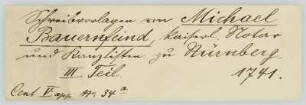 Schreibvorlagen von Michael
Bauernfeind, kaiserl. Notar
und Kanzlisten zu Nürnberg
III. Teil. 1741.
Cent V app. 34a